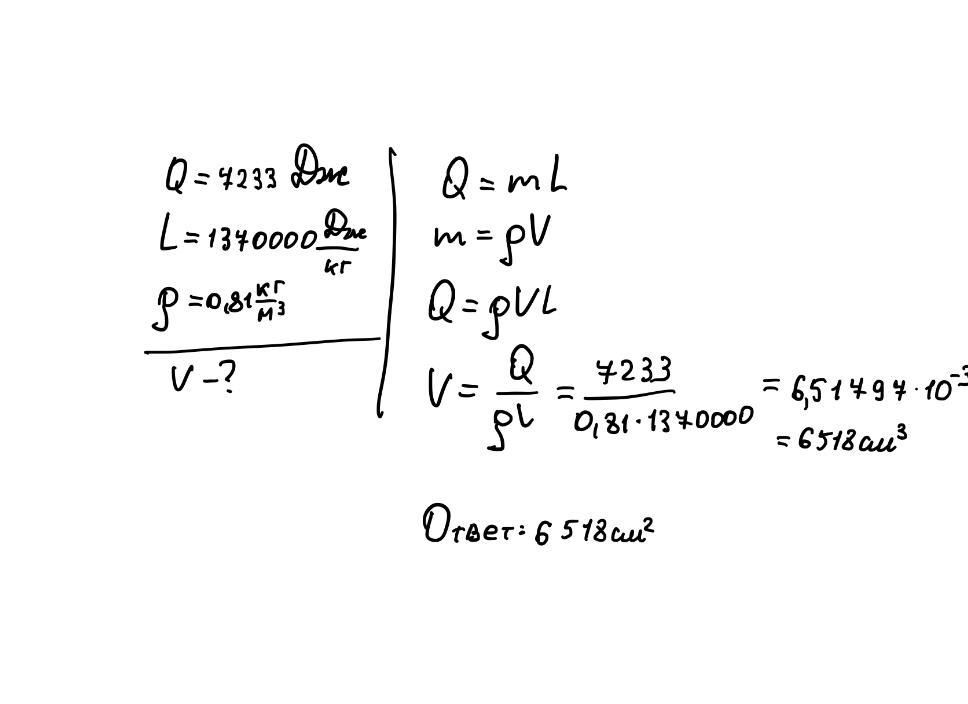 Q = 7233 Дж
L = 1370000 Дж/кг
ρ = 0,81 кг/м³
V - ?
Q = mL
m = ρV
Q = ρVL
V = Q/ρL = 7233/0,81·1370000 = 6,51797·10⁻³
= 6518 см³
Ответ: 6518 см²